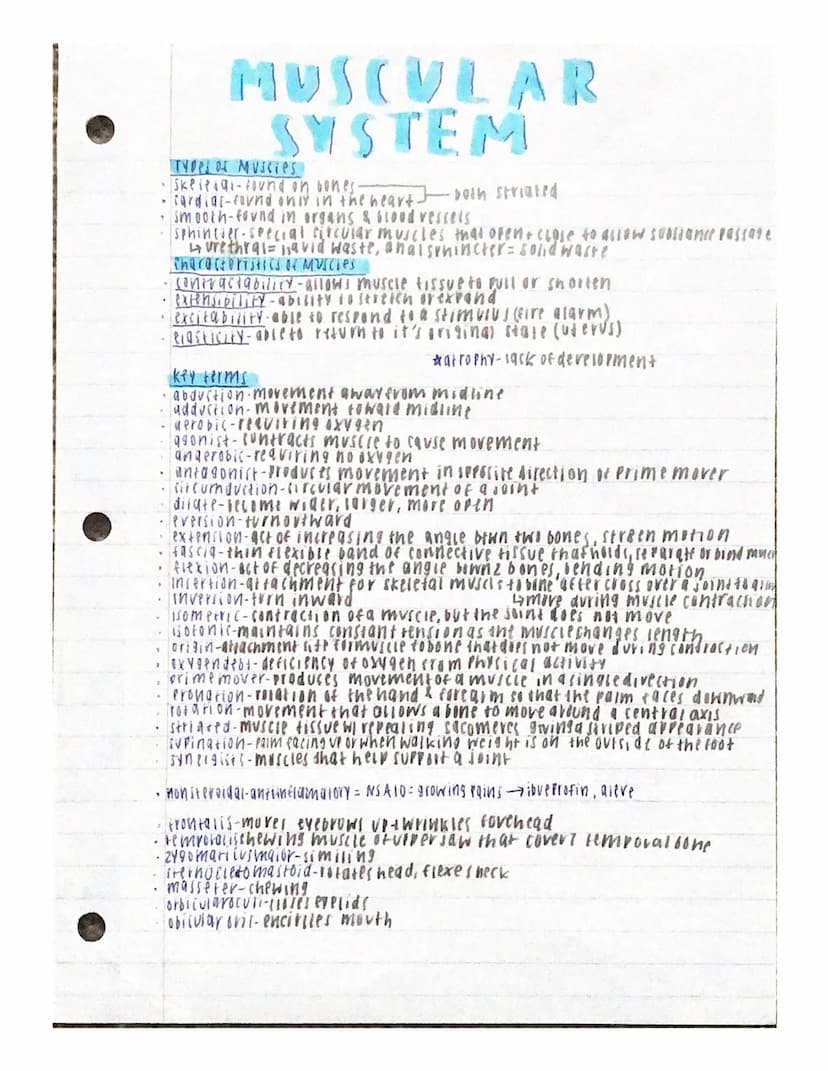 MUSCULAR
SYSTEM
Types of Muscles
· skeletal-found on bones
· cardiac-found only in the heart — both striated
· smooth-found in organs & blood vessels
· sphincter-special circular muscles that open + close to allow substance passage
↳ urethral= liquid waste, anal sphincter= solid waste
Characteristics of Muscles
· contractability-allows muscle tissue to pull or shorten
· extensibility-ability to stretch or expand
· excitability-able to respond to a stimulus (fire alarm)
· elasticity-able to return to it's original state (uterus)
*atrophy-lack of development
Key terms
· abduction-movement away from midline
· adduction-movement toward midline
· aerobic-requiring oxygen
· agonist-contracts muscle to cause movement
· anaerobic-requiring no oxygen
· antagonist-produces movement in opposite direction of prime mover
· circumduction-circular movement of a joint
· dilate-become wider, larger, more open
· eversion-turn outward
· extension-act of increasing the angle btwn two bones, motion
· fascia-thin flexible band of connective tissue that holds, separate or bind
· flexion-act of decreasing the angle 2 bones, bending motion
· insertion-attachment for skeletal muscle to bone after cross over a joint to
· inversion-turn inward ↳move during muscle contraction
· isometric-contraction of a muscle, but the joint does not move
· isotonic-maintains constant tension as the muscle changes length
· origin-attachment site for muscle to bone that does not move during contraction
· oxygen debt-deficiency of oxygen from physical activity
· prime mover-produces movement of a muscle in a single direction
· pronation-rotation of the hand & forearm so that the palm faces downward
· rotation-movement that allows a bone to move around a central axis
· striated-muscle tissue w/ repeating sacomeres giving a striped appearance
· supination-palm facing up or when walking weight is on the outside of the foot
· synergists-muscles that help support a joint
· nonsteroidal-antiinflamatory = NSAID: growing pains → ibuprofin, aleve
· frontalis-moves eyebrows up + wrinkles forehead
· temporalis chewing muscle of upper jaw that covers temporal bone
· zygomaticus maior-similing
· sternocleiomastoid-rotates head, flexes neck
· masseter-chewing
· orbicularoculi-closes eyelids
· obicular oris-encircles mouth